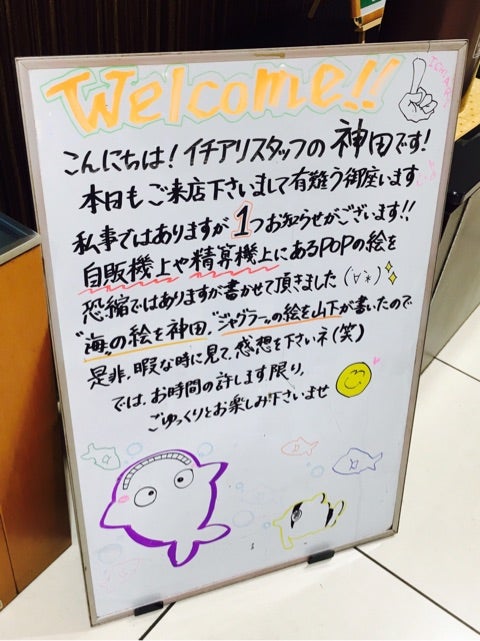 Welcome!!
こんにちは!イチアリスタッフの神田です!
本日もご来店下さいまして有難う御座います
私事ではありますが1つお知らせがございます!!
自販機上や精算機上にあるPOPの絵を
恐縮ではありますが書かせて頂きました
"海"の絵を神田、"ジャグラー"の絵を山下が書いたので
是非、暇な時に見て、感想を下さいネ(笑)
では、お時間の許します限り、
ごゆっくりとお楽しみ下さいませ